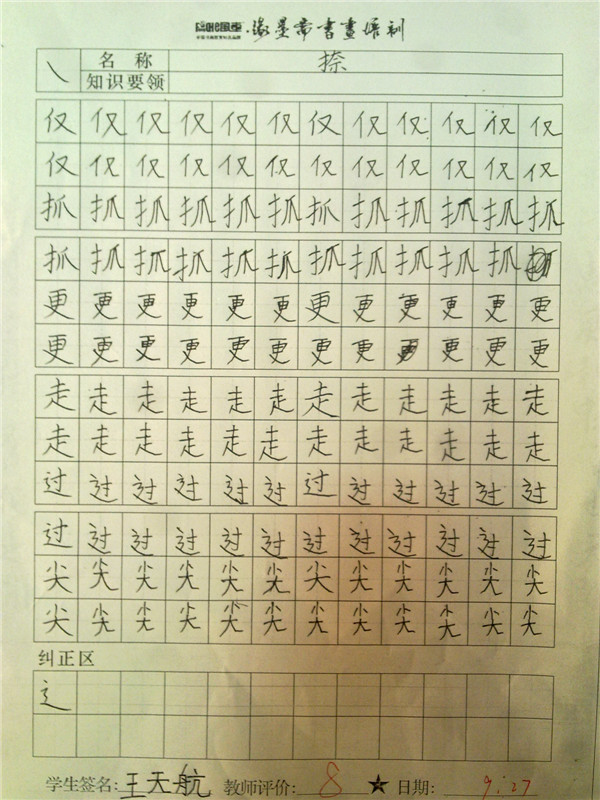 缘墨斋书画培训
㇏ 名称 捺
知识要领
仅 仅 仅 仅 仅 仅 仅 仅 仅 仅 仅 仅
仅 仅 仅 仅 仅 仅 仅 仅 仅 仅 仅 仅
抓 抓 抓 抓 抓 抓 抓 抓 抓 抓 抓 抓
抓 抓 抓 抓 抓 抓 抓 抓 抓 抓 抓
更 更 更 更 更 更 更 更 更 更 更 更
更 更 更 更 更 更 更 更 更 更 更 更
走 走 走 走 走 走 走 走 走 走 走 走
走 走 走 走 走 走 走 走 走 走 走 走
过 过 过 过 过 过 过 过 过 过 过 过
过 过 过 过 过 过 过 过 过 过 过 过
尖 尖 尖 尖 尖 尖 尖 尖 尖 尖 尖 尖
尖 尖 尖 尖 尖 尖 尖 尖 尖 尖 尖 尖
纠正区
辶
学生签名: 王天航 教师评价: 8 ★ 日期: 9:27